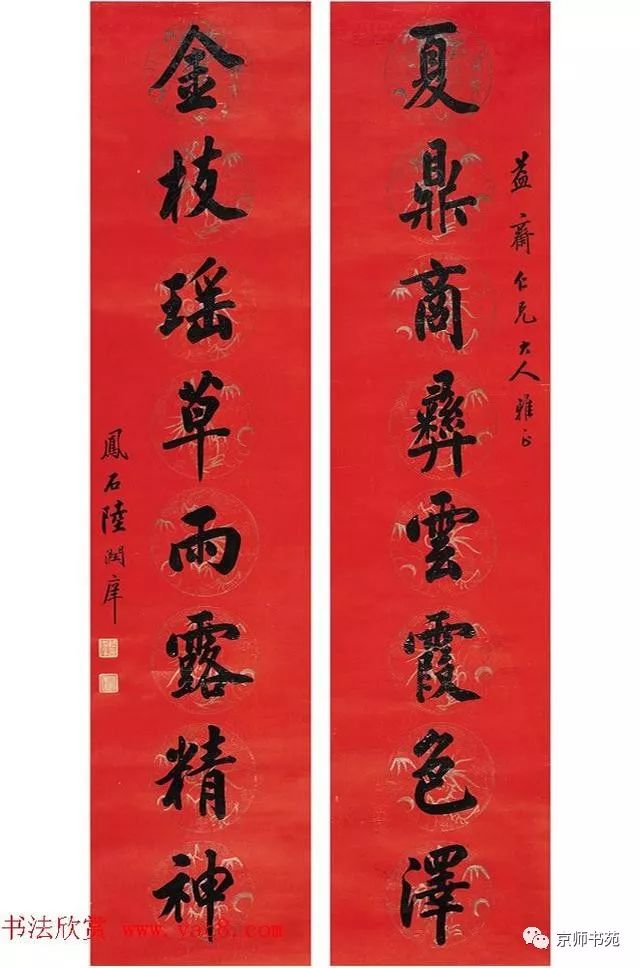 益齋仁兄大人雅正
夏鼎商彝雲霞色澤
金枝瑶草雨露精神
鳳石陸潤庠
书法欣赏 www.yac8.com
京师书苑